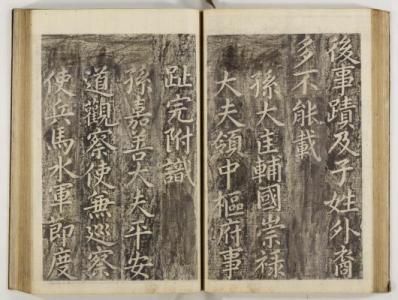 後事蹟及子姓外裔
多不能載
孫大匡輔國崇祿
大夫領中樞府事
趾完附識
孫嘉善大夫平安
道觀察使兼巡察
使兵馬水軍節度